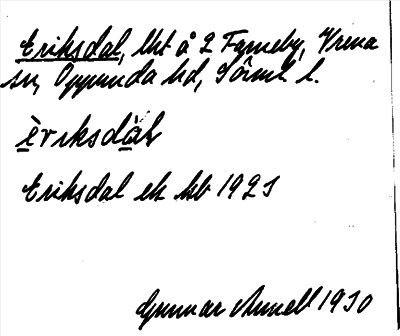 Eriksdal, lht å 2 Fameby, Vrena
sn, Oppunda hd, Södml l.
èriksdàl
Eriksdal ek kb 1925
Gunnar Annell 1930